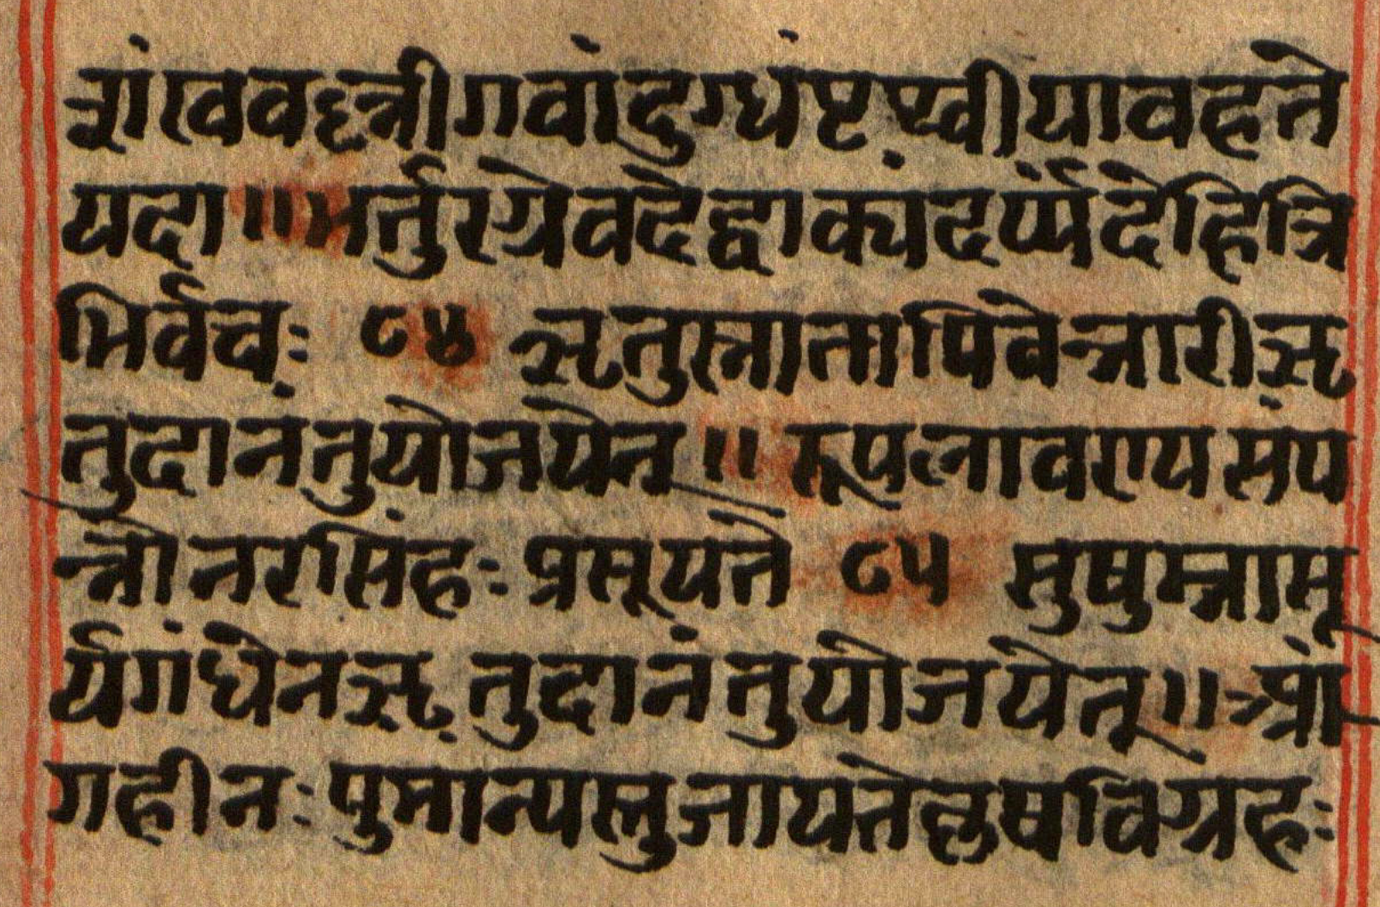 शंखवदृत्रीगवांदुग्धंष्टष्वीयावहते
यदा ॥ भर्तुरग्रेवदेद्वाक्यंदर्प्पंदेहित्रि
भिर्वचः ८४ ऋतुस्नातापिवेन्नारीऋ
तुदानंतुयोजयेत् ॥ रूपलावण्यसंप
न्नोनरसिंहः प्रसूयते ८५ सुषुम्नासू
र्यगंधेनऋतुदानंतुयोजयेत् ॥ अं
गहीनः पुमान्यस्तुजायतेक्रुषविग्रहः